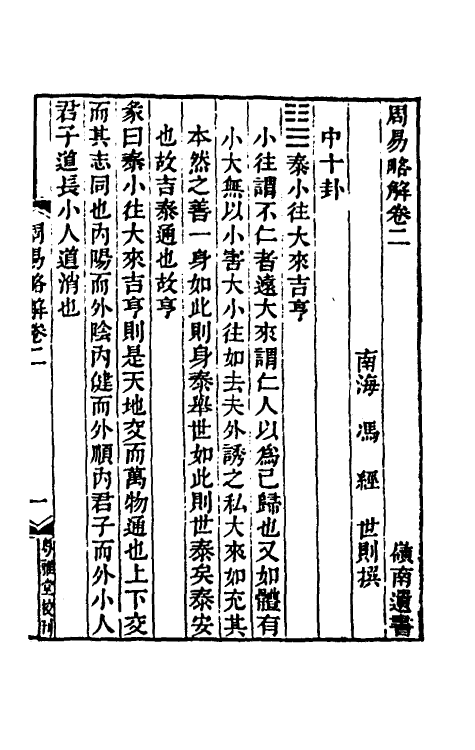 周易略解卷二　嶺南遺書
南海　馮經　世則撰
中十卦
䷊泰小往大來吉亨
小往謂不仁者遠大來謂仁人以為己歸也又如體有
小大無以小害大小往如去夫外誘之私大來如充其
本然之善一身如此則身泰舉世如此則世泰矣泰安
也故吉泰通也故亨
彖曰泰小往大來吉亨則是天地交而萬物通也上下交
而其志同也內陽而外陰內健而外順內君子而外小人
君子道長小人道消也
周易略解卷二　一　粤雅堂校刊